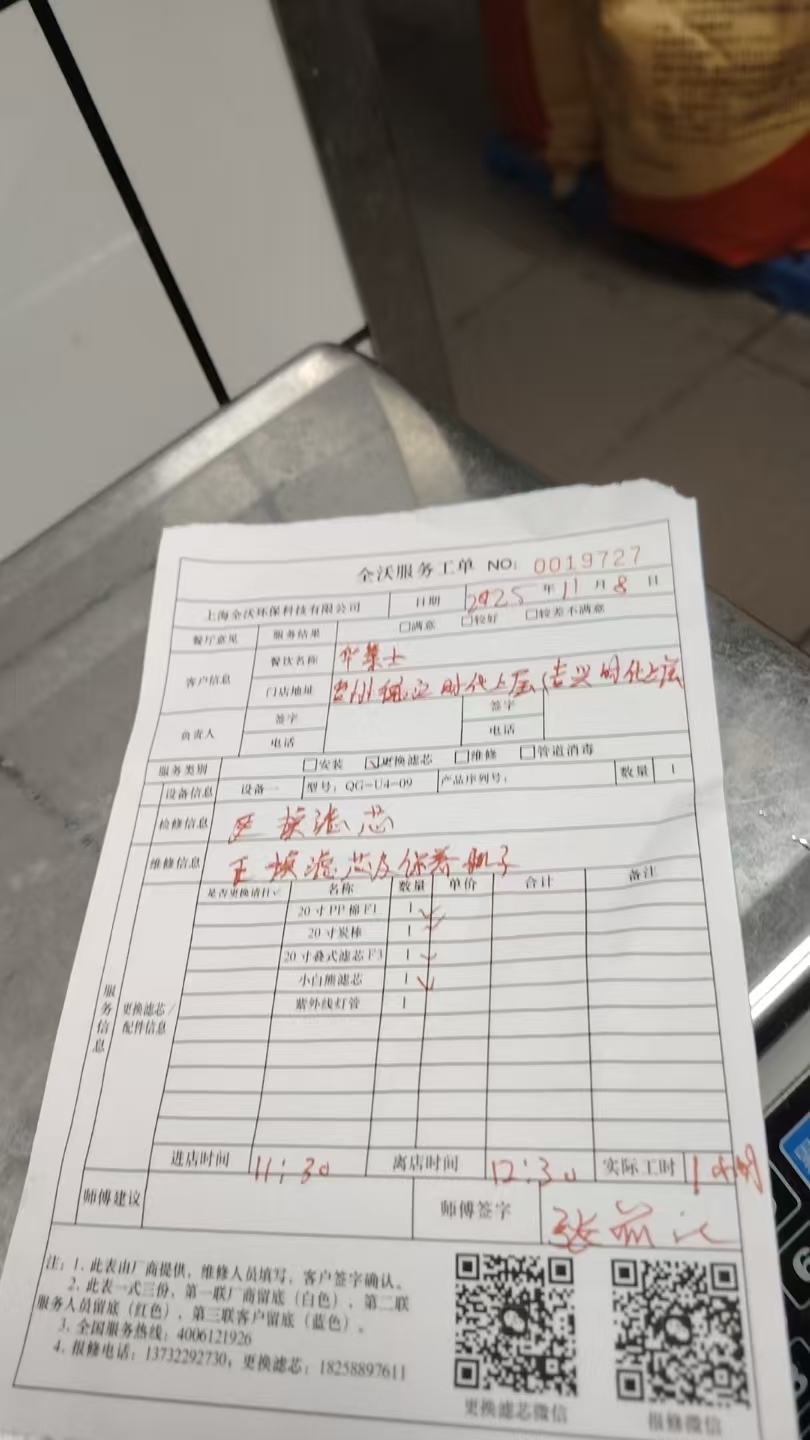 全沃服务工单 NO: 0019727
上海全沃环保科技有限公司 日期 2025 年 11 月 8 日
餐厅意见 服务结果 □满意 □较好 □较差不满意
客户信息 餐饮名称 华莱士
门店地址 时代上层(吉兴时代上层
负责人 签字 签字
电话 电话
服务类别 □安装 ☑更换滤芯 □维修 □管道消毒
设备信息 设备一 型号: QG-U4-09 产品序列号: 数量 1
检修信息 更换滤芯
维修信息 更换滤芯及保养机子
服务信息 更换滤芯/配件信息
是否更换请打✓ 名称 数量 单价 合计 备注
20寸PP棉F1 1 ✓
20寸炭棒 1 ✓
20寸叠式滤芯F3 1 ✓
小白熊滤芯 1 ✓
紫外线灯管 1
进店时间 11:30 离店时间 12:30 实际工时 1小时
师傅建议 师傅签字
注: 1. 此表由厂商提供, 维修人员填写, 客户签字确认。
2. 此表一式三份, 第一联厂商留底(白色), 第二联
服务人员留底(红色), 第三联客户留底(蓝色)。
3. 全国服务热线: 4006121926
4. 报修电话: 13732292730; 更换滤芯: 18258897611
更换滤芯微信 报修微信